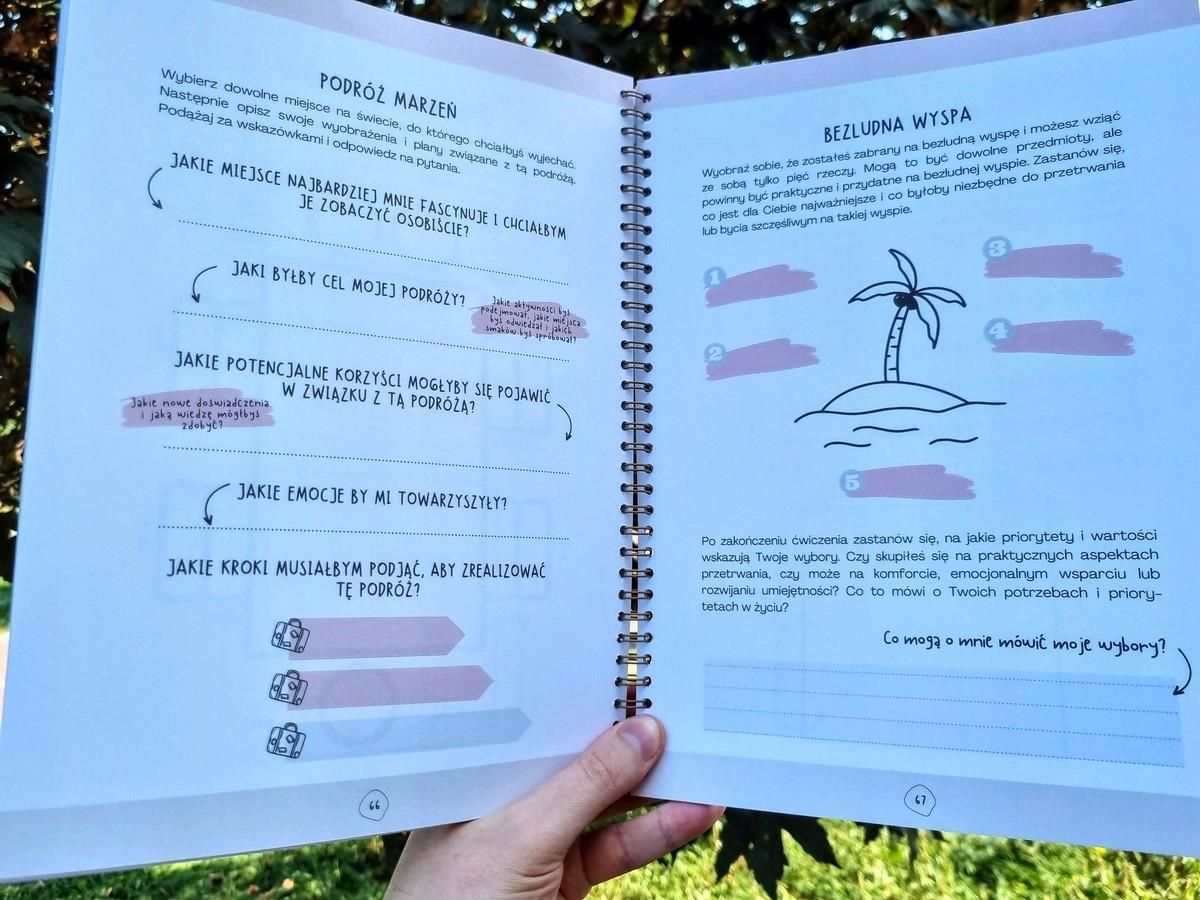 PODRÓŻ MARZEŃ
Wybierz dowolne miejsce na świecie, do którego chciałbyś wyjechać.
Następnie opisz swoje wyobrażenia i plany związane z tą podróżą.
Podążaj za wskazówkami i odpowiedz na pytania.
JAKIE MIEJSCE NAJBARDZIEJ MNIE FASCYNUJE I CHCIAŁBYM
JE ZOBACZYĆ OSOBIŚCIE?
JAKI BYŁBY CEL MOJEJ PODRÓŻY?
Jakie aktywności byś
podejmował, jakie miejsca
byś odwiedzał i jakich
smaków byś spróbował?
JAKIE POTENCJALNE KORZYŚCI MOGŁYBY SIĘ POJAWIĆ
W ZWIĄZKU Z TĄ PODRÓŻĄ?
Jakie nowe doświadczenia
i jaką wiedzę mógłbyś
zdobyć?
JAKIE EMOCJE BY MI TOWARZYSZYŁY?
JAKIE KROKI MUSIAŁBYM PODJĄĆ, ABY ZREALIZOWAĆ
TĘ PODRÓŻ?
66
BEZLUDNA WYSPA
Wyobraź sobie, że zostałeś zabrany na bezludną wyspę i możesz wziąć
ze sobą tylko pięć rzeczy. Mogą to być dowolne przedmioty, ale
powinny być praktyczne i przydatne na bezludnej wyspie. Zastanów się,
co jest dla Ciebie najważniejsze i co byłoby niezbędne do przetrwania
lub bycia szczęśliwym na takiej wyspie.
1
2
3
4
5
Po zakończeniu ćwiczenia zastanów się, na jakie priorytety i wartości
wskazują Twoje wybory. Czy skupiłeś się na praktycznych aspektach
przetrwania, czy może na komforcie, emocjonalnym wsparciu lub
rozwijaniu umiejętności? Co to mówi o Twoich potrzebach i priory-
tetach w życiu?
Co mogą o mnie mówić moje wybory?
67